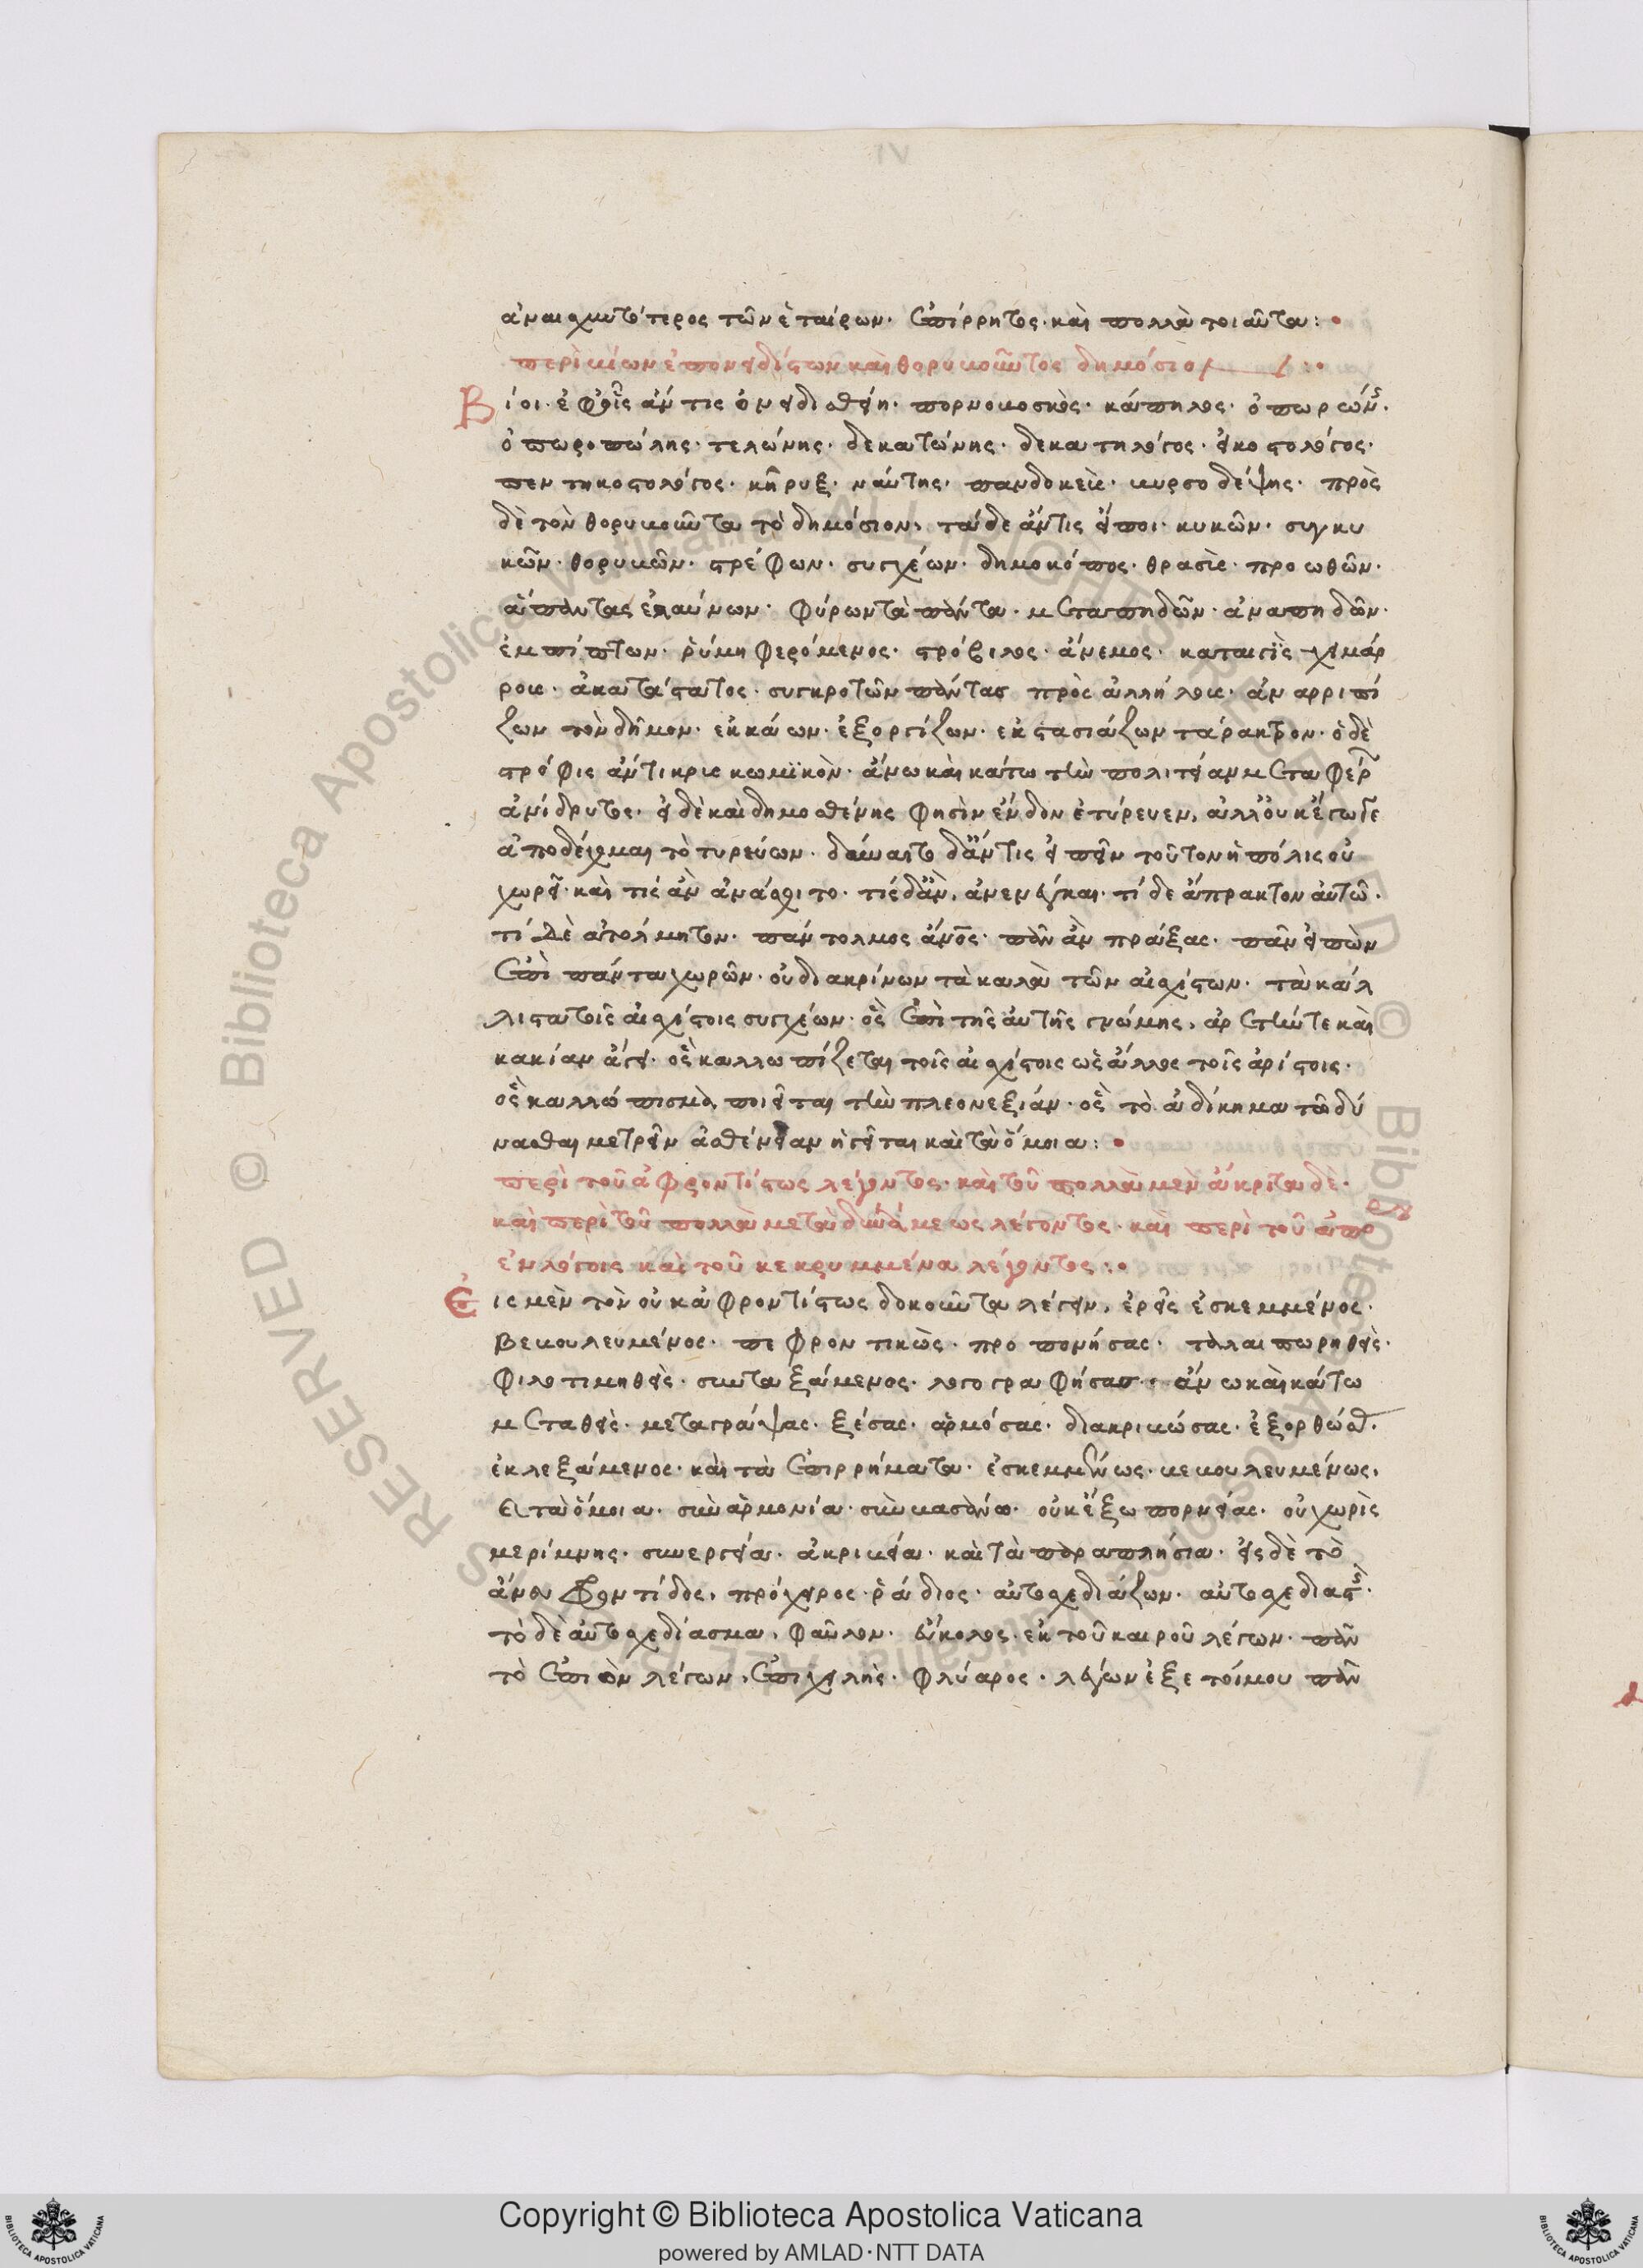 ἀναισχυντότερος τῶν ἑταίρων· ἐπίρρητος· καὶ πολλὰ τοιαῦτα:
περὶ βίων ἐπονειδίστων καὶ θορυβοῦντος δημόσιον:
Βίοι· ἐφ' οἷς ἄν τις ὀνειδισθείη· πορνοβοσκὸς· κάπηλος· ὀπωρώνης·
ὀπωροπώλης· τελώνης· δεκατώνης· δεκατηλόγος· εἰκοστολόγος·
πεντηκοστολόγος· κῆρυξ· ναύτης· πανδοκεὺς· βυρσοδέψης· πρὸς
δὲ τὸν θορυβοῦντα τὸ δημόσιον, τάδε ἄν τις εἴποι· κυκῶν· συγκυ
κῶν· θορυβῶν· στρέφων· συγχέων· δημοκόπος· θρασὺς· προωθῶν·
ἅπαντας ἐλαύνων· φύρων τὰ πάντα· μεταπηδῶν· ἀναπηδῶν·
ἐμπίπτων· ῥύμη φερόμενος· στρόβιλος· ἄνεμος· καταιγὶς χειμάρ
ρους· ἀκατάστατος· συγκροτῶν πάντας πρὸς ἀλλήλους· ἀναρριπί
ζων τὸν δῆμον· ἐκκάων· ἐξοργίζων· ἐκστασιάζων τάρακτρον· ὁ δὲ
στρόφις ἄντικρυς κωμϊκὸν· ἄνω καὶ κάτω τὴν πολιτείαν μεταφέρων
ἀνίδρυτος· εἰ δὲ καὶ δημοσθένης φησὶν ἔνδον ἐτύρευεν, ἀλλ' οὐκ ἔγωγε
ἀποδέχομαι τὸ τυρεύων· δύναιτο δ' ἄν τις εἰπεῖν τοῦτον ἡ πόλις οὐ
χωρεῖ· καὶ τίς ἂν ἀνάσχοιτο· τίς δ' ἂν, ἀνενέγκαι· τί δε ἄπρακτον αὐτῶ·
τί δὲ ἀτόλμητον· πάντολμος ἄνος· πᾶν ἂν πράξας· πᾶν εἰπὼν
ἐπὶ πάντα χωρῶν· οὐ διακρίνων τὰ καλὰ τῶν αἰσχίστων· τὰ κάλ
λιστα τοῖς αἰσχίστοις συγχέων· ὃς ἐπὶ τῆς αὐτῆς γνώμης, ἀρετήν τε καὶ
κακίαν ἄγει· ὃς καλλωπίζεται τοῖς αἰσχίστοις ὡς ἄλλος τοῖς ἀρίστοις·
ὃς καλλώπισμα ποιεῖται τὴν πλεονεξίαν· ὃς τὸ ἀδίκημα τῶ δύ
νασθαι μετρεῖν ἀσθένειαν ἡγεῖται καὶ τὰ ὅμοια:
περὶ τοῦ ἀφροντίστως λέγοντος· καὶ τοῦ πολλὰ μὲν ἄκριτα δὲ·
καὶ περὶ τοῦ πολλὰ μετὰ δυνάμεως λέγοντος· καὶ περὶ τοῦ ἀπόρου
ἐν λόγοις καὶ τοῦ κεκρυμμένα λέγοντος:
Εἰς μὲν τὸν οὐκ ἀφροντίστως δοκοῦντα λέγειν, ἐρεῖς ἐσκεμμένος·
βεβουλευμένος· πεφροντικὼς· προπονήσας· ταλαιπωρηθεὶς·
φιλοτιμηθεὶς· συνταξάμενος· λογογραφήσας· ἄνω καὶ κάτω
μεταθεὶς· μεταγράψας· ξέσας· ἁρμόσας· διακριβώσας· ἐξορθώσας·
ἐκλεξάμενος· καὶ τὰ ἐπιρρήματα· ἐσκεμμένως· βεβουλευμένως,
καὶ τὰ ὅμοια· σὺν ἁρμονία· σὺν βασάνω· οὐκ ἔξω πορνείας· οὐ χωρὶς
μερίμνης· συνεργεία· ἀκριβεία· καὶ τὰ παραπλήσια· εἰς δὲ τὸ
ἄνευ φροντίδος, πρόχειρος· ῥάδιος· αὐτοσχεδιάζων· αὐτοσχεδιαστὴς·
τὸ δὲ αὐτοσχεδίασμα, φαῦλον· εὔκολος· ἐκ τοῦ καιροῦ λέγων· πᾶν
τὸ ἐπιὸν λέγων, ἐπιχειλὴς· φλύαρος· λέγων ἐξ ετοίμου πᾶν